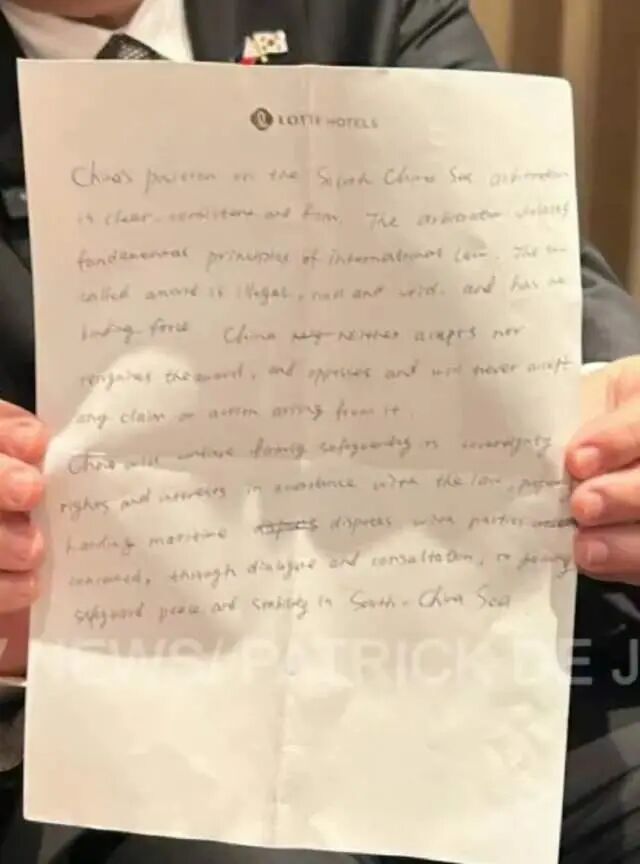 LOTTE HOTELS
China's position on the South China Sea arbitration
is clear, consistent and firm. The arbitration violates
fundamental principles of international law. The so
called award is illegal, null and void. and has no
binding force China neither accepts nor
recognizes the award, and opposes and will never accept
any claim or action arising from it.
China will continue firmly safeguarding its sovereignty
rights and interests in accordance with the law,
handling maritime disputes with parties
concerned, through dialogue and consultation, to
safeguard peace and stability in South-China Sea
NEWS/ PATRICK DE J